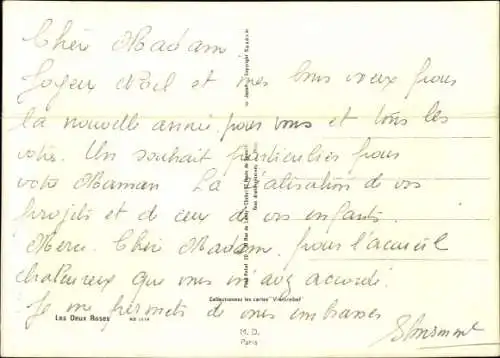 Cher Madam
Joyeux Noël et mes bons vœux pour
la nouvelle année pour vous et tous les
votre. Un souhait particulier pour
votr Maman La réalisation de vos
projets et de ceux de vos enfants.
Merci Cher Madam pour l'accueil
chaleureux que vous m'avez accordé.
Je me permets de vous embrasser
Collectionnez les cartes
Les Deux Roses
M. D.
Paris